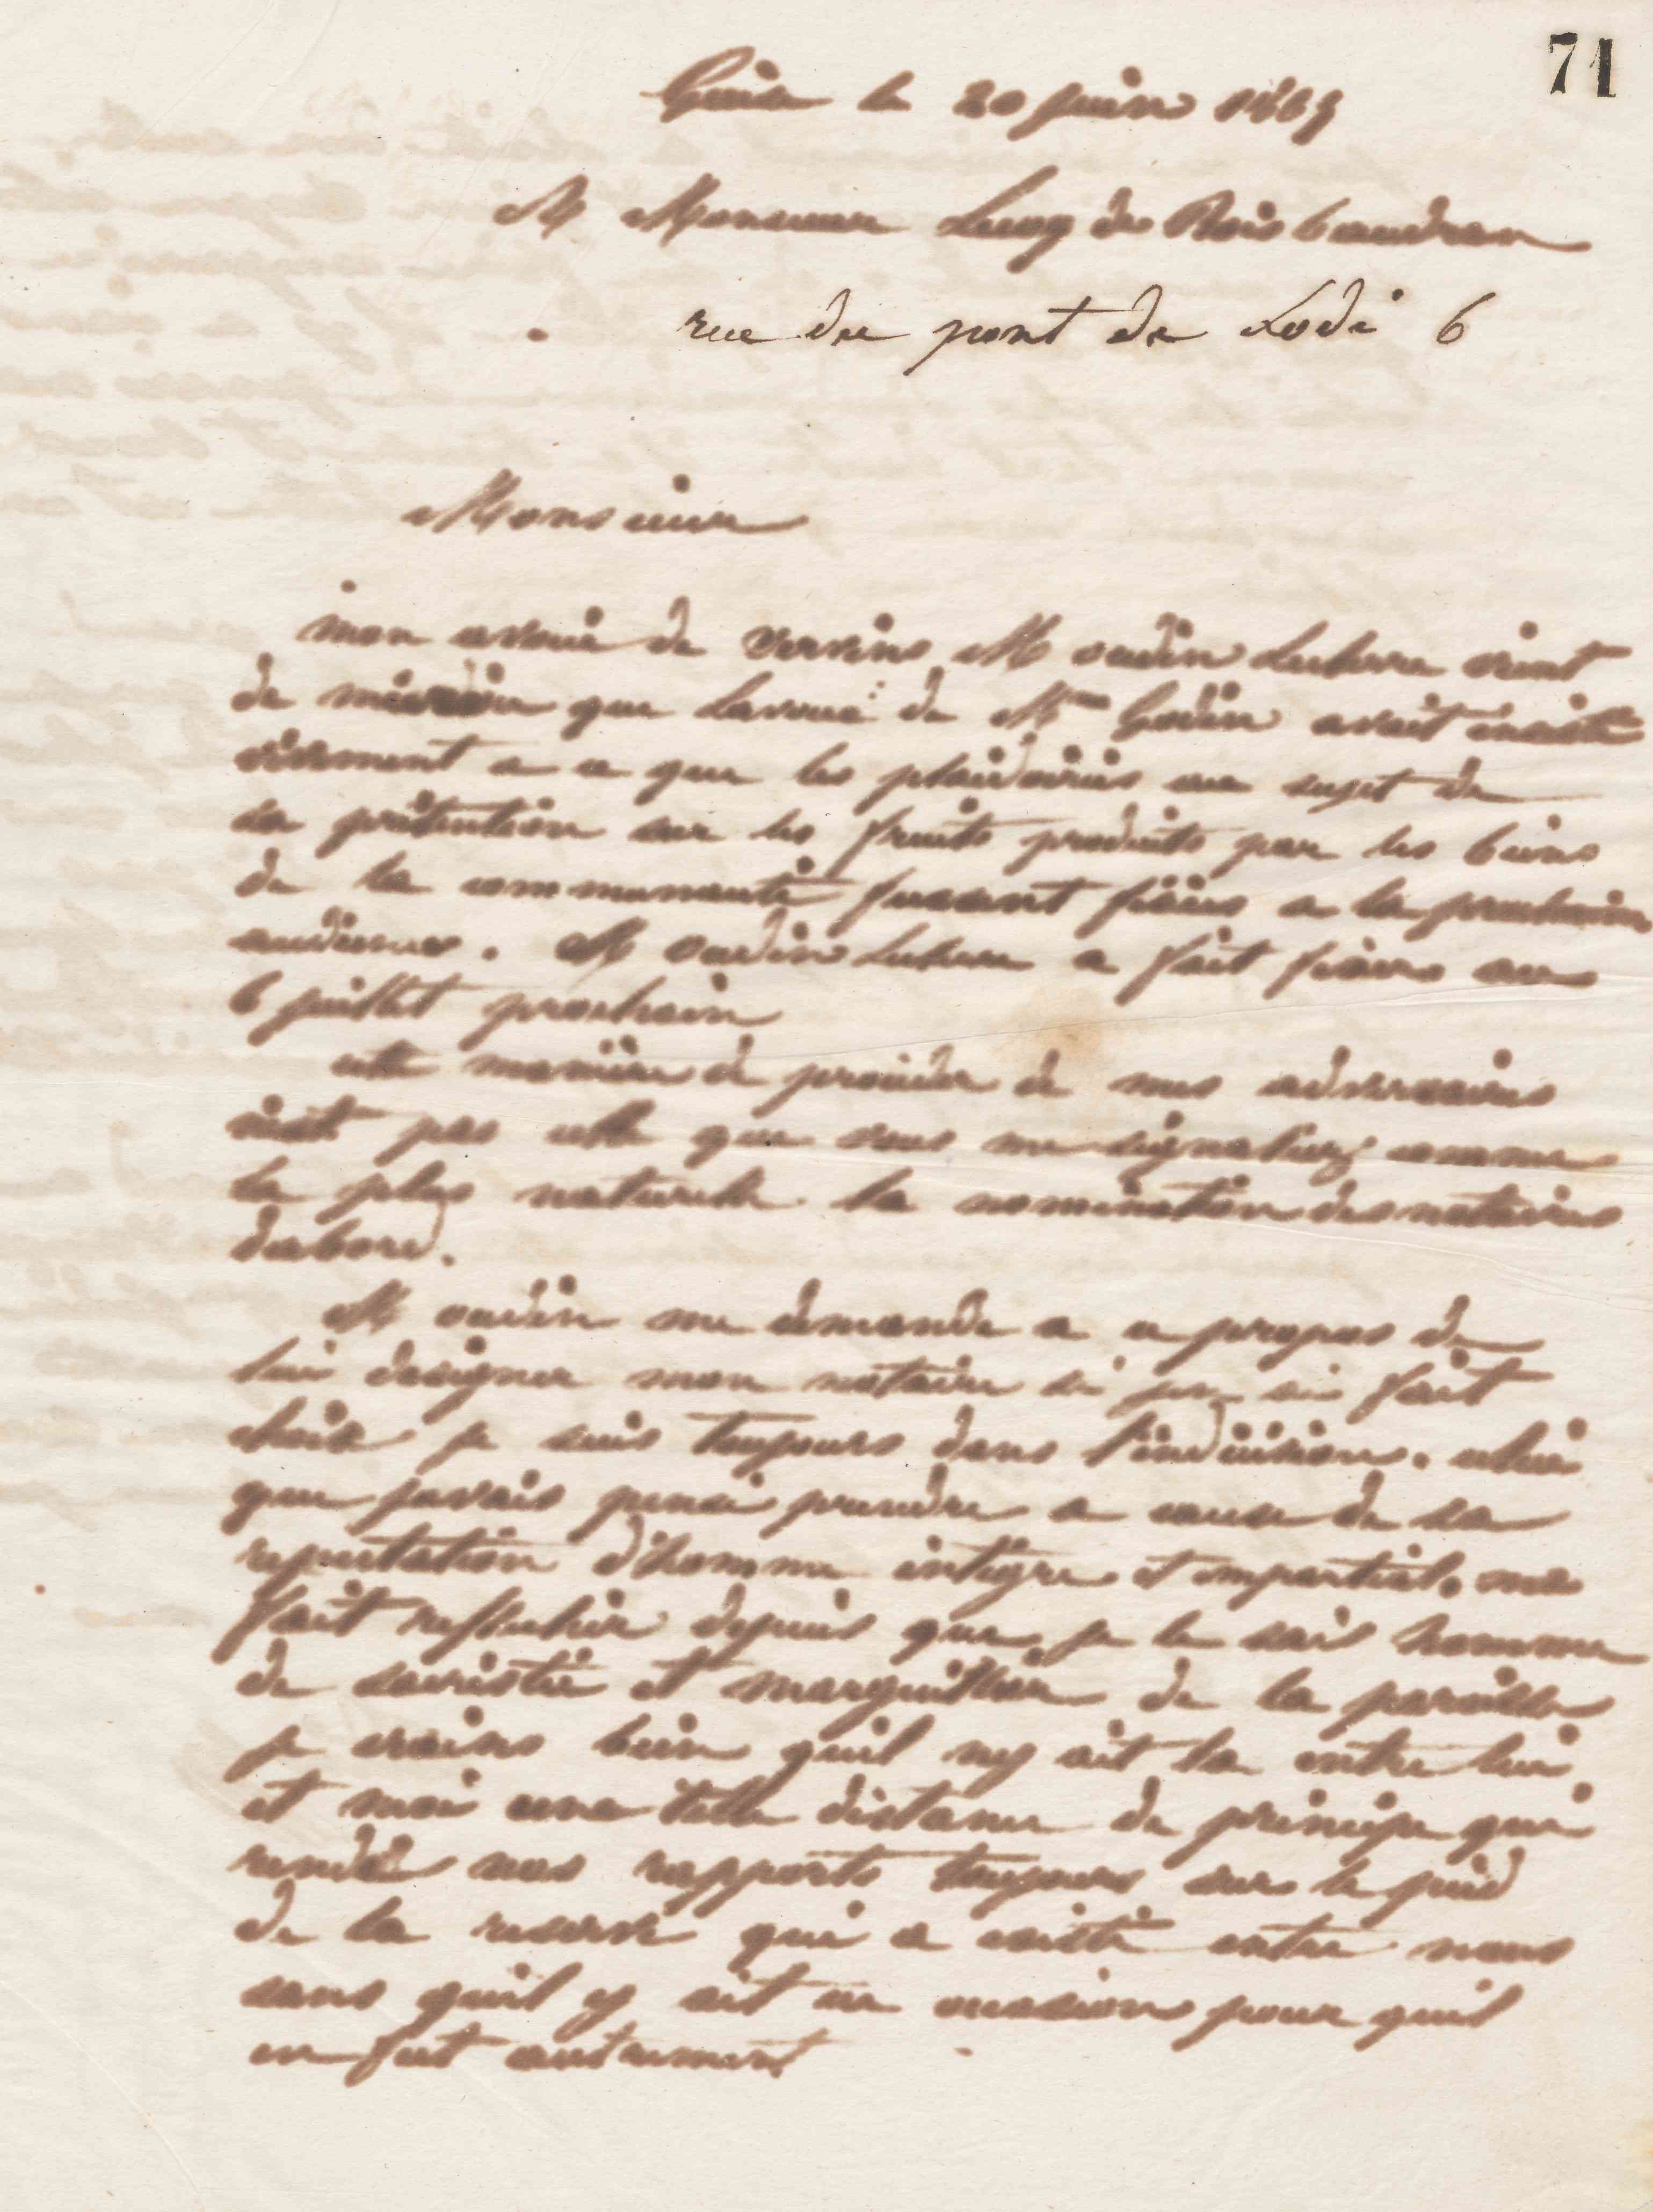 71
Guise le 20 juin 1865
A Monsieur Lecoq de Boisbaudran
rue du pont de Lodi 6
Monsieur
mon avoué de Vervins M oudin Leclere vient
de que lavoué de Mme Godin avait insisté
vivement a ce que les plaidoiries au sujet de
sa prétention sur les fruits produits par les biens
de la communauté fussent fixées a la prochaine
audience. M oudin Leclere a fait fixer au
6 juillet prochain
cette manière de procéder de mes adversaires
nest pas celle que vous me signaliez comme
la plus naturelle la nomination des notaires
dabord.
M oudin me demande a ce propos de
lui designer mon notaire si jen ai fait
choix je suis toujours dans l'indécision. celui
que javais pensé prendre a cause de sa
reputation d'homme intègre et impartial. me
fait reflechir depuis que je le sais homme
de sacristie et marguillier de la paroisse
je crains bien quil ny ait la entre lui
et moi une telle distance de principe qui
rende nos rapports toujours sur le pied
de la reserve qui a existé entre nous
sans quil y ait eu occasion pour quil
en fut autrement